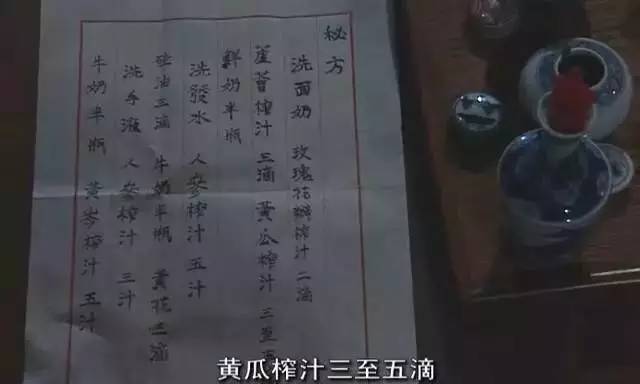 秘方
洗面奶 玫瑰花瓣榨汁 二滴
蘆薈榨汁 三滴 黃瓜榨汁 三至五
鮮奶半瓶
洗發水 人參榨汁 五汁
三滴 牛奶半瓶 黃花 滴
洗手液 人參榨汁 三汁
牛奶半瓶 黃岑榨汁 五汁
黄瓜榨汁三至五滴